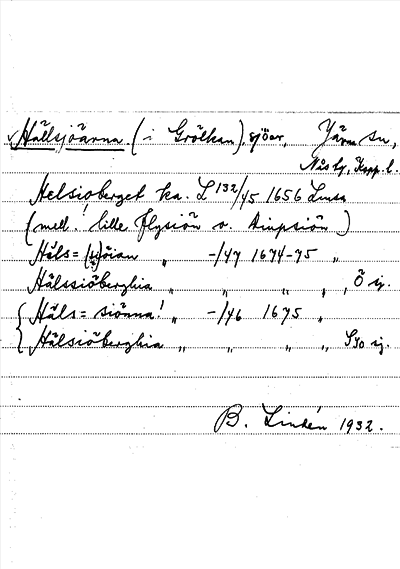 Hällsjöarna (i Grölkan), sjöar, Järna sn,
Nås hd, Kopp. l.
Helsioberget ka. L 132/45 1656 Lmsa
(mell. lille Flysiön o. Diupsiön)
Häls= siöian " -/47 1674-75 "
Hälssiöberghia " " " , Ö sj.
Häls= siönna! " -/46 1675 "
Hälsiöberghia " " " " SVo sj.
B. Lindén 1932.